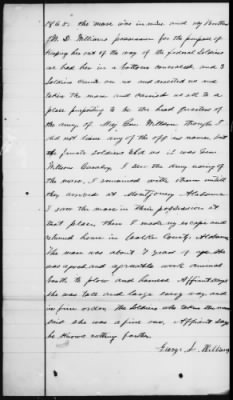 1865. The mare was in mine and my Brother
M. D. Williams possession for the purpose of
keeping her out of the way of the federal Soldiers
we had her in a bottom concealed and 3
Soldiers came on us and arrested us and
taken the mare and carried us all to a
place purporting to be the head quarters of
the army of Maj Genl Willson though I
did not learn any of the officers names but
the private soldiers told us it was Genl
Willsons Cavalry, I saw the army using of
the mare, I remained with them until
they arrived at Montgomery Alabama
I saw the mare in their possession at
that place then I made my escape and
returned home in County, Alabama
The mare was about 7 years of age she
was a good and a work animal
both to plow and harness Affiant says
she was tall and large easy way and
in fine order. The Soldiers who taken the mare
said she was a fine one, Affiant says
he knows nothing farther
George S. Williams